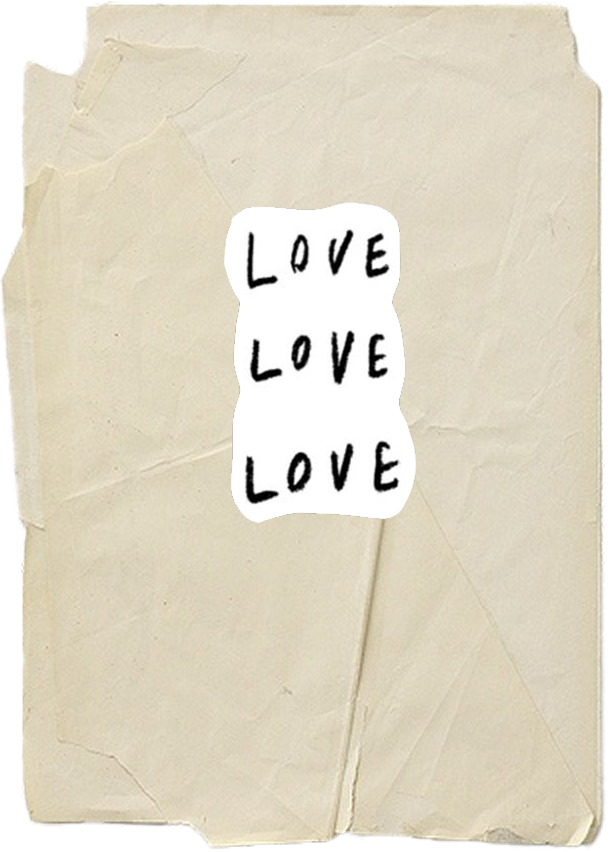 LOVE
LOVE
LOVE